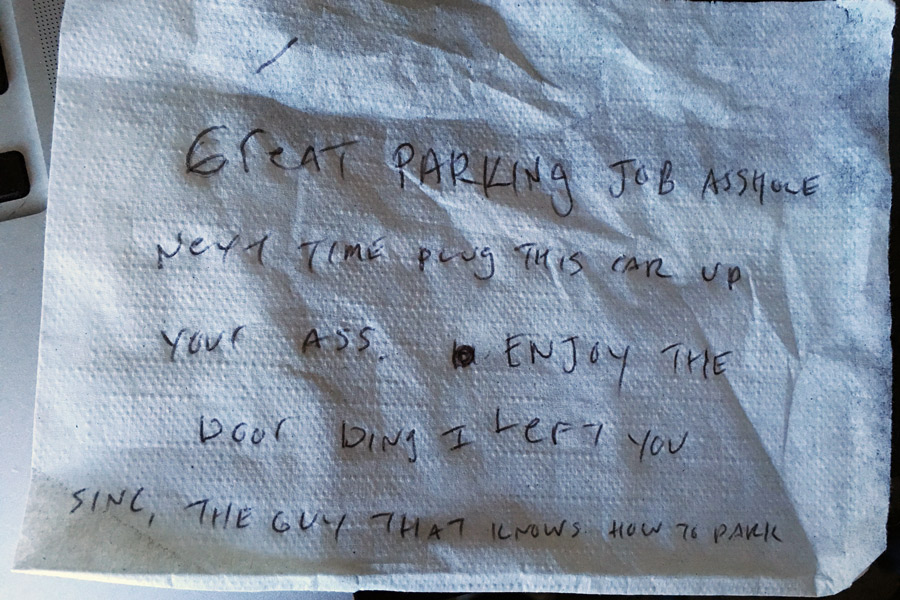 GreAT PARKING JOB ASSHOLE
NexT TIME plug THIS CAR UP
YOUr ASS. ENJOY THE
Door DING I LeFT YOU
SINC, THE GUY THAT KNOWS HOW TO PARK